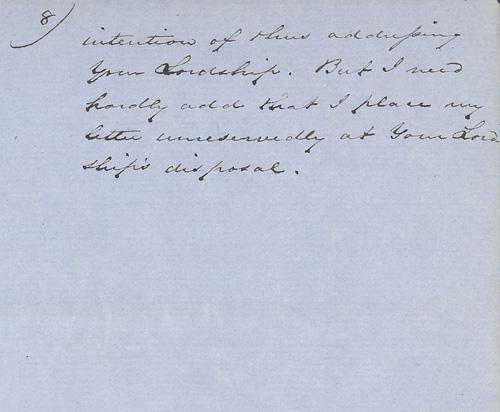 8)
intention of thus addressing
Your Lordship. But I need
hardly add that I place my
letter unreservedly at Your Lord
ship's disposal.